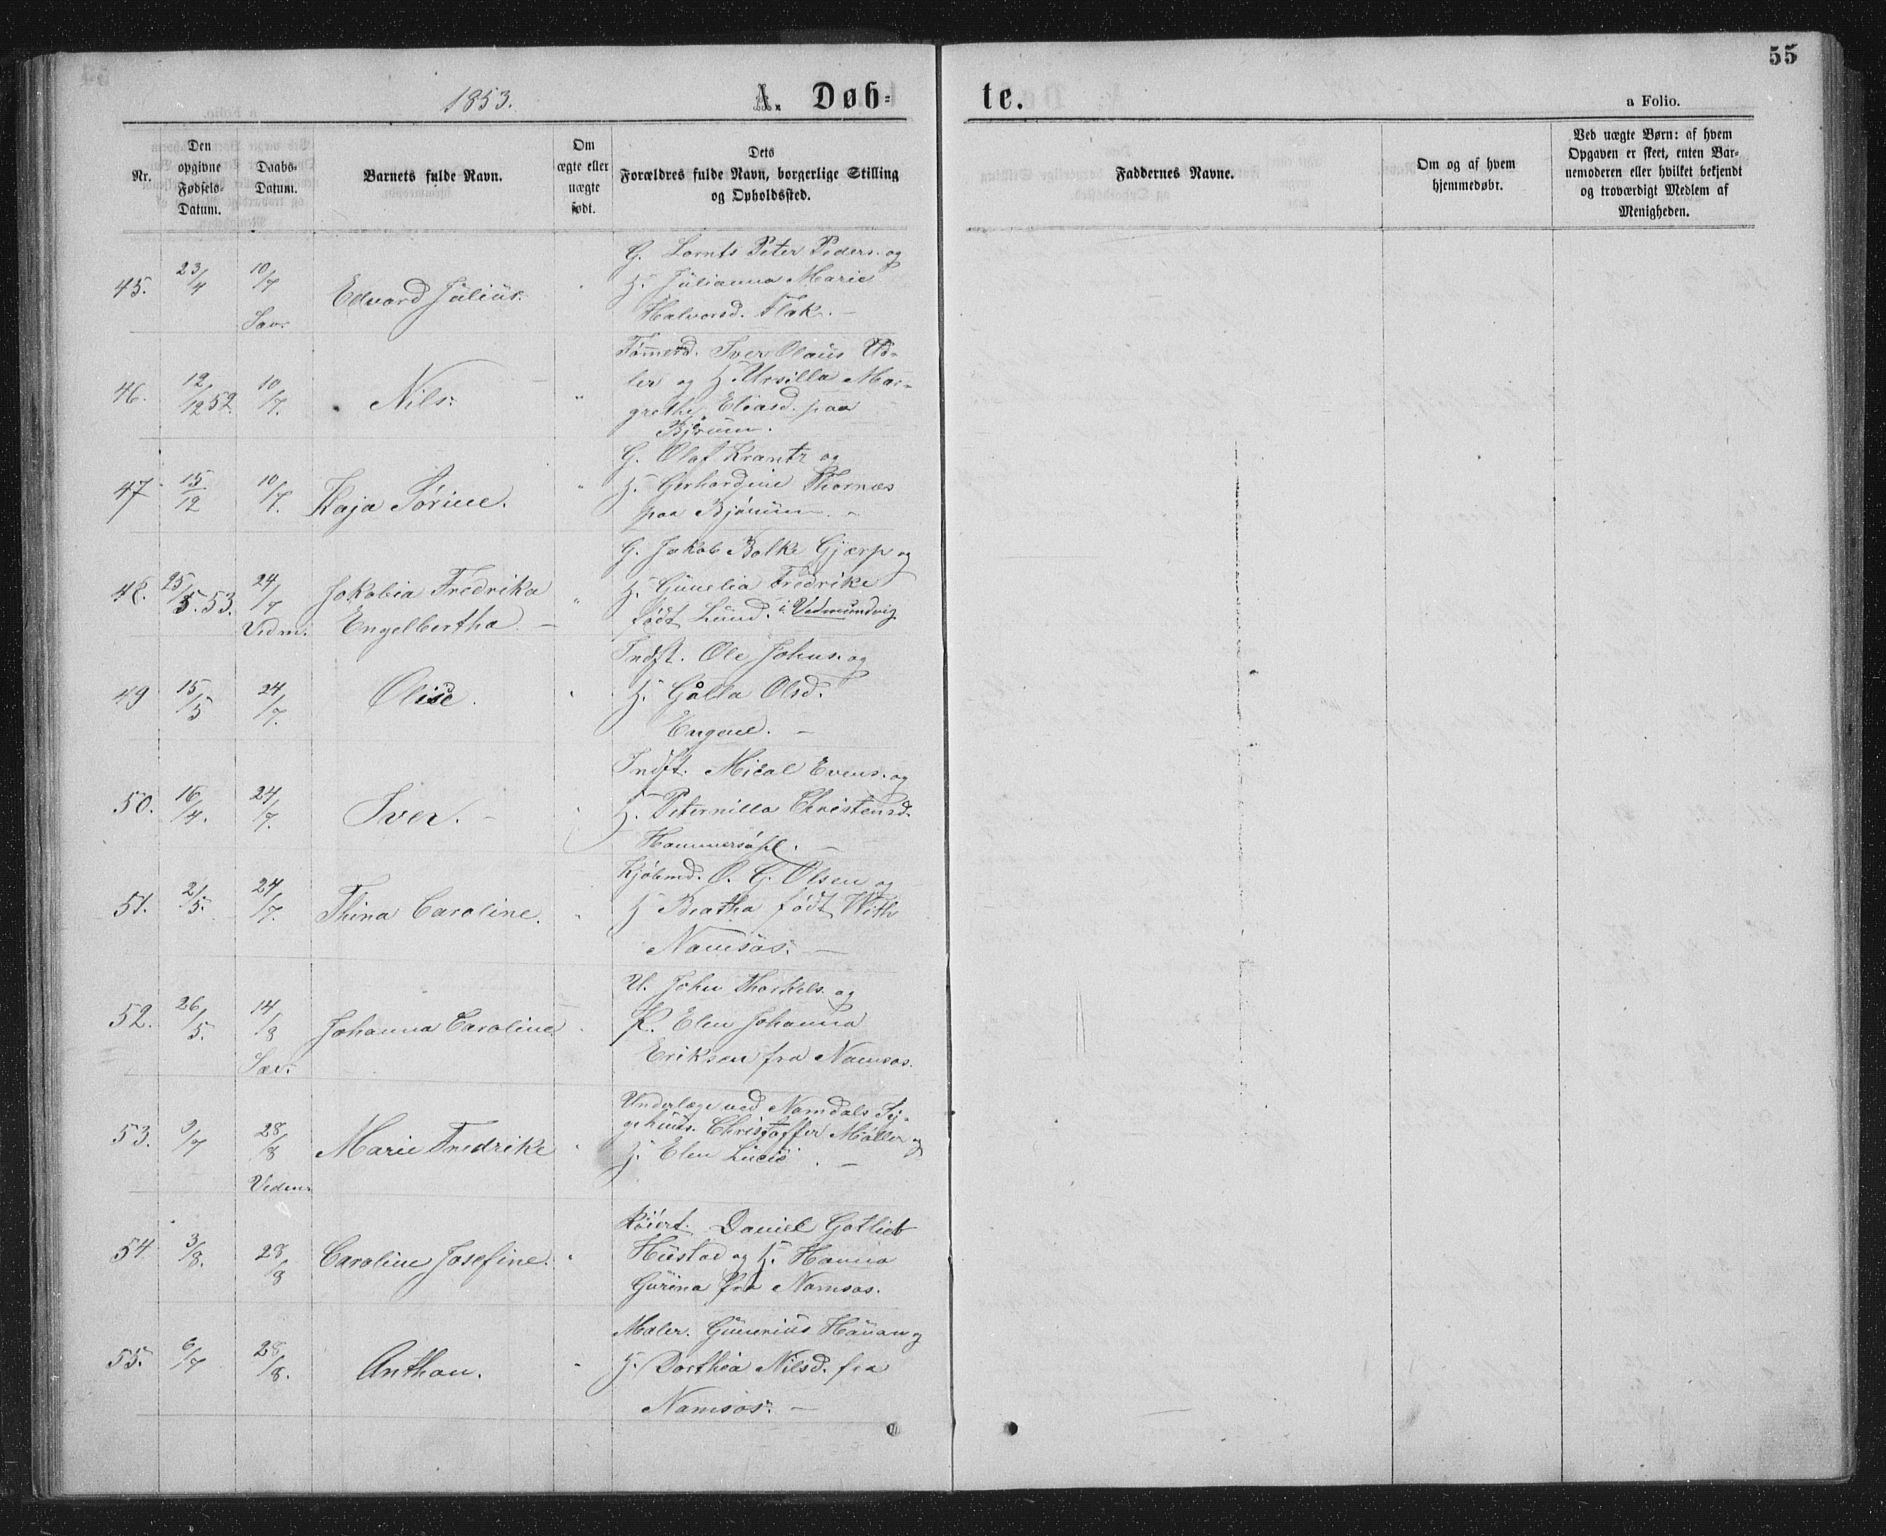 55
1853. A. Døbte.
a Folio.
Nr.
Den opgivne Fødsels-Datum.
Daabs-Datum.
Barnets fulde Navn.
Om ægte eller uægte født.
Dets Forældres fulde Navn, borgerlige Stilling og Opholdssted.
Faddernes Navne.
Om og af hvem hjemmedøbt.
Ved uægte Børn: af hvem Opgaven er skeet, enten Barnemoderen eller hvilket bekjendt og troværdigt Medlem af Menigheden.
45. 23/4 10/7 Sav. Edvard Julius. " G. Lornts Peter Peders. og
H. Julianna Marie
Halvorsd. Flak. —
46. 12/12 52. 10/7. Nils. " Tømmerd. Iver Olaus
og H. Ursilla Mar-
grethe Eliasd. paa
Bjørum.
47. 15/12 10/7. Kaja Sørine. " G. Olaf Krantz og
H. Gerhardine Thornæs
paa Bjørum. —
48. 25/5. 53. 24/7 Vedm. Jakobia Fredrika
Engelbertha. — " G. Jakob Balke Gjærp og
H. Gunelia Fredrike
født Lund. i Vedmundvig
49. 15/5 24/7. Olise. " Indst. Ole Johns. og
H. Gølla Olsd.
Engene. —
50. 16/4. 24/7. Iver. — " Indst. Mical Evens. og
H. Peternilla Christensd.
—
51. 2/5. 24/7. Thina Caroline. " Kjøbmd. O. G. Olsen og
H. Beatha født With
Namsos. —
52. 26/5. 14/8 Sæv. Johanna Caroline. " U. John Thorkels. og
P. Elen Johanna
Eriksen fra Namsos.
53. 9/7 28/8 Vedm. Marie Fredrike " Underlæge ved Namdals Sy-
gehuus. Christoffer Møller og
H. Elen Lucie. —
54. 3/8. 28/8 Caroline Josefine. " Daniel Gotlieb
Hustad og H. Hanna
Gurina fra Namsos.
55. 6/7 28/8. Anthon. " Maler. Gunerius Hauan og
H. Dorthea Nilsd. fra
Namsos. —